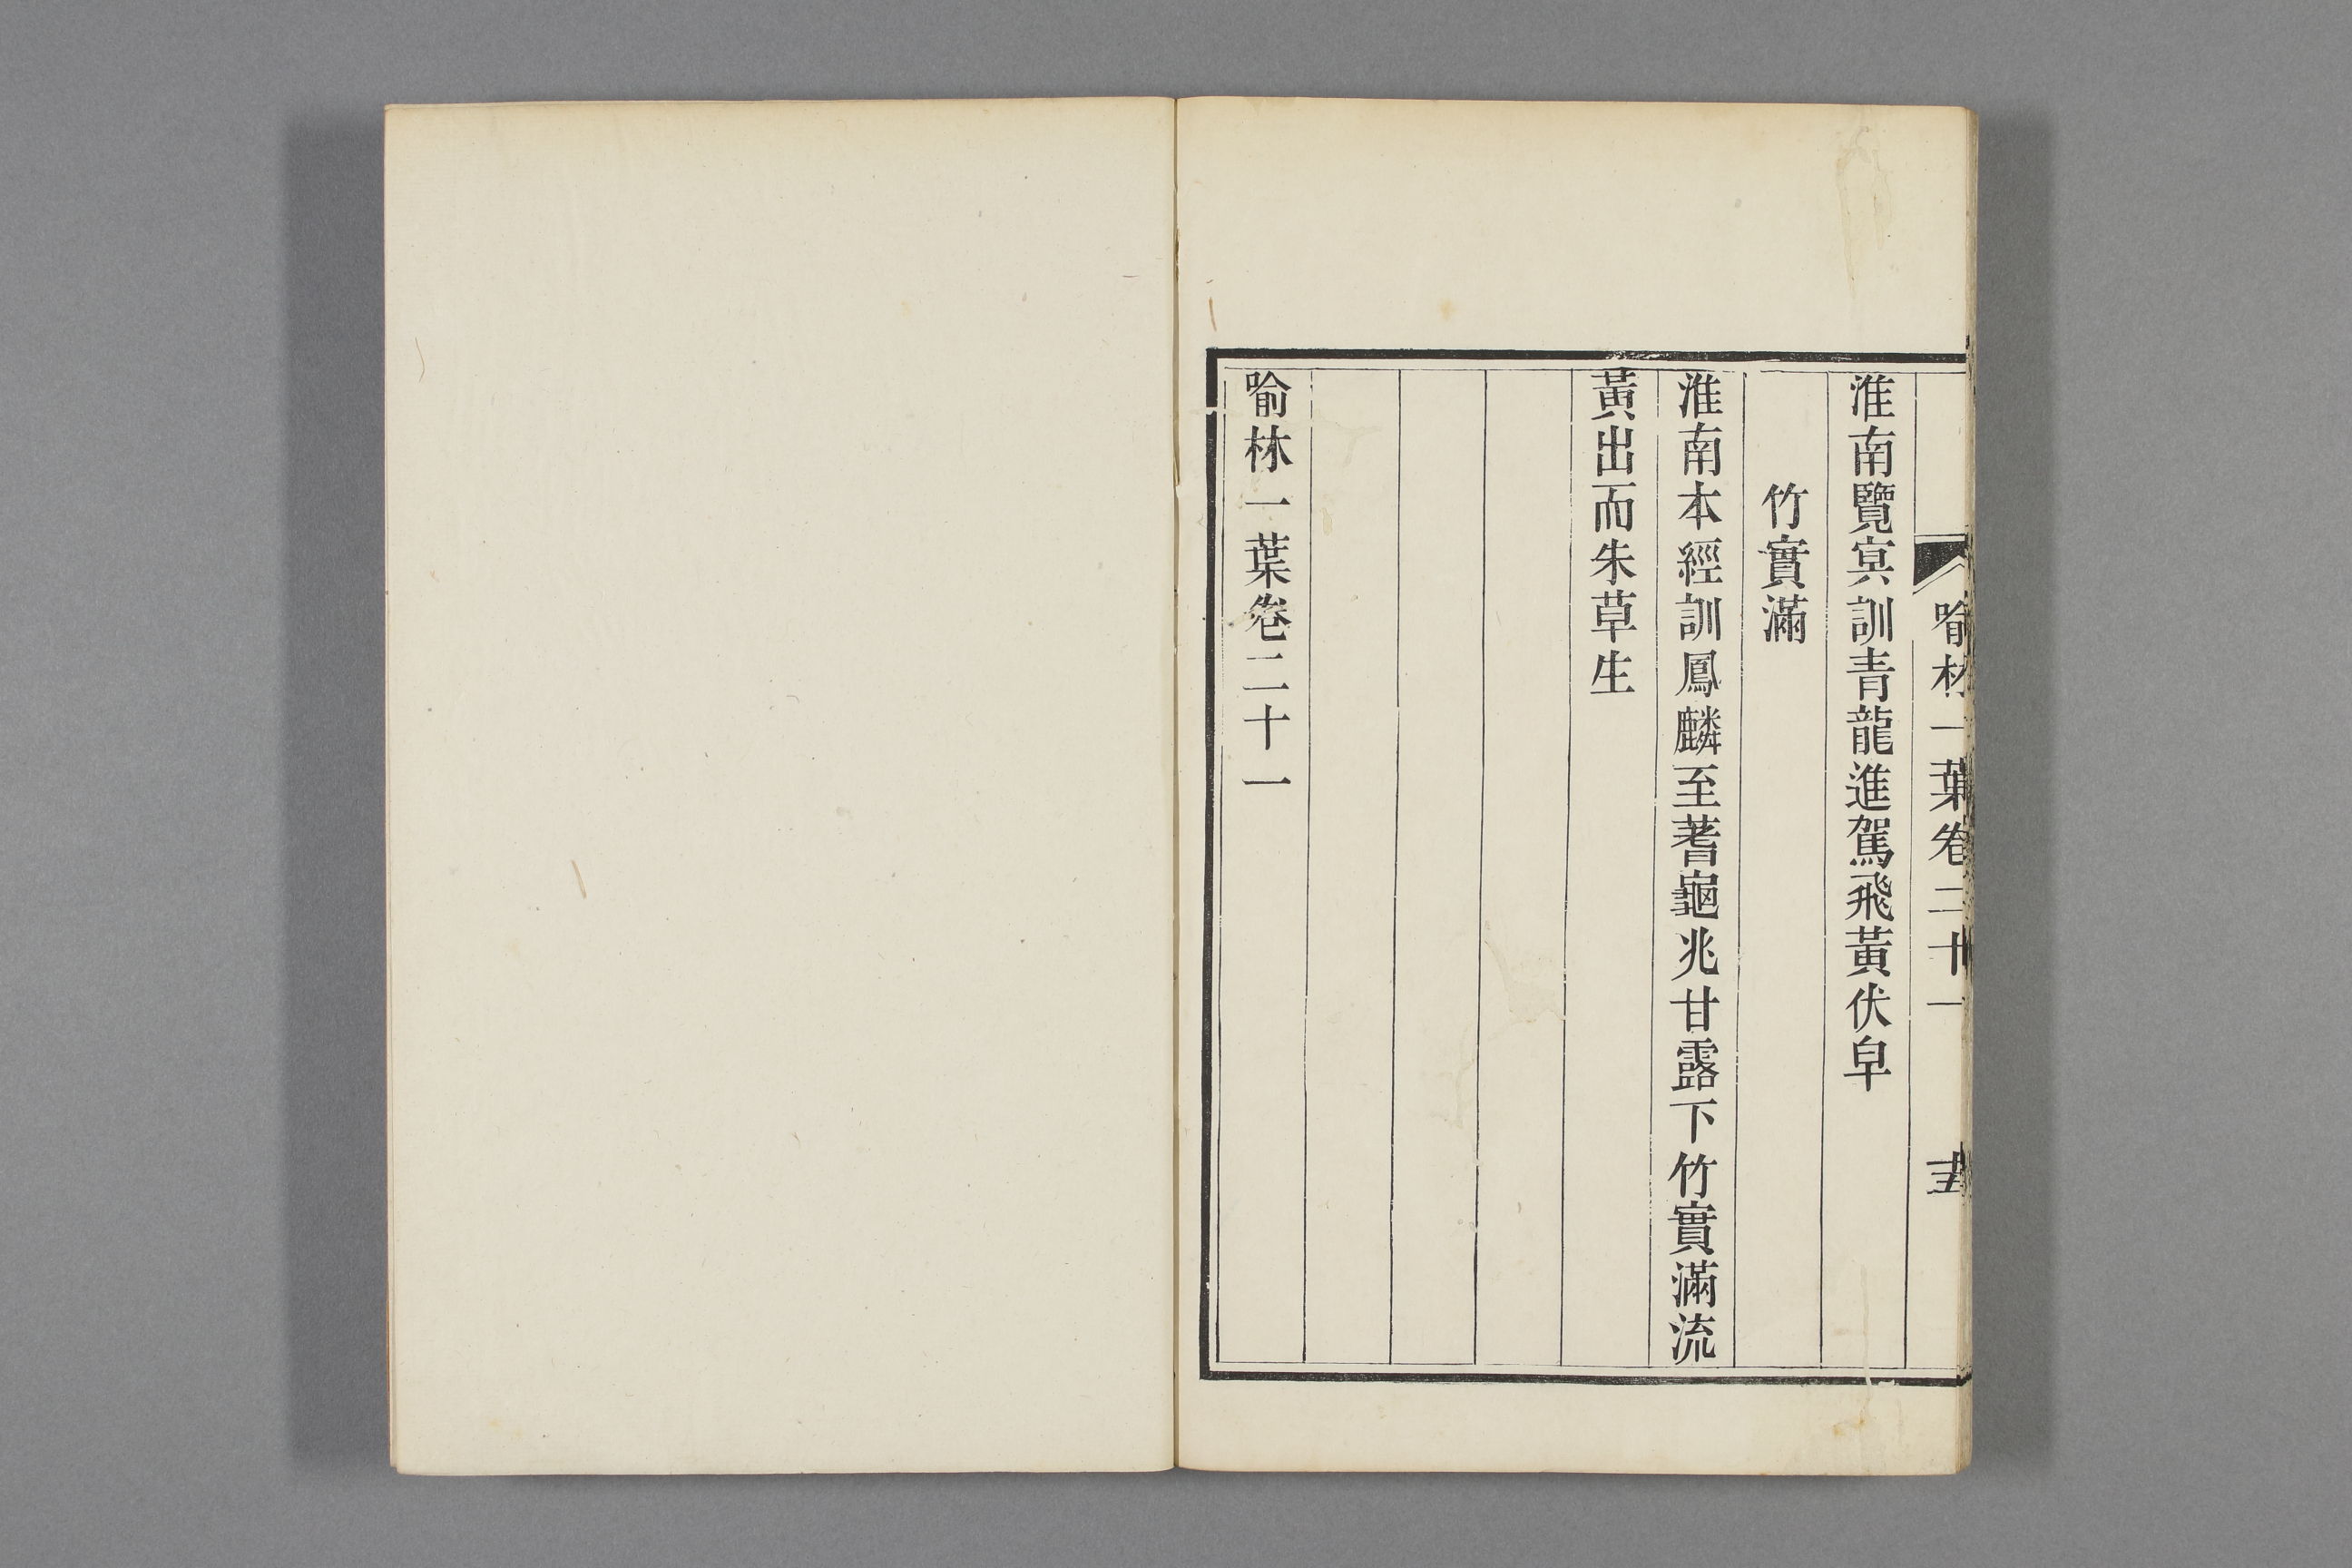 喻林一葉卷二十一
淮南覽冥訓青龍進駕飛黃伏皁
竹實滿
淮南本經訓鳳麟至蓍龜兆甘露下竹實滿流
黃出而朱草生
喻林一葉卷二十一